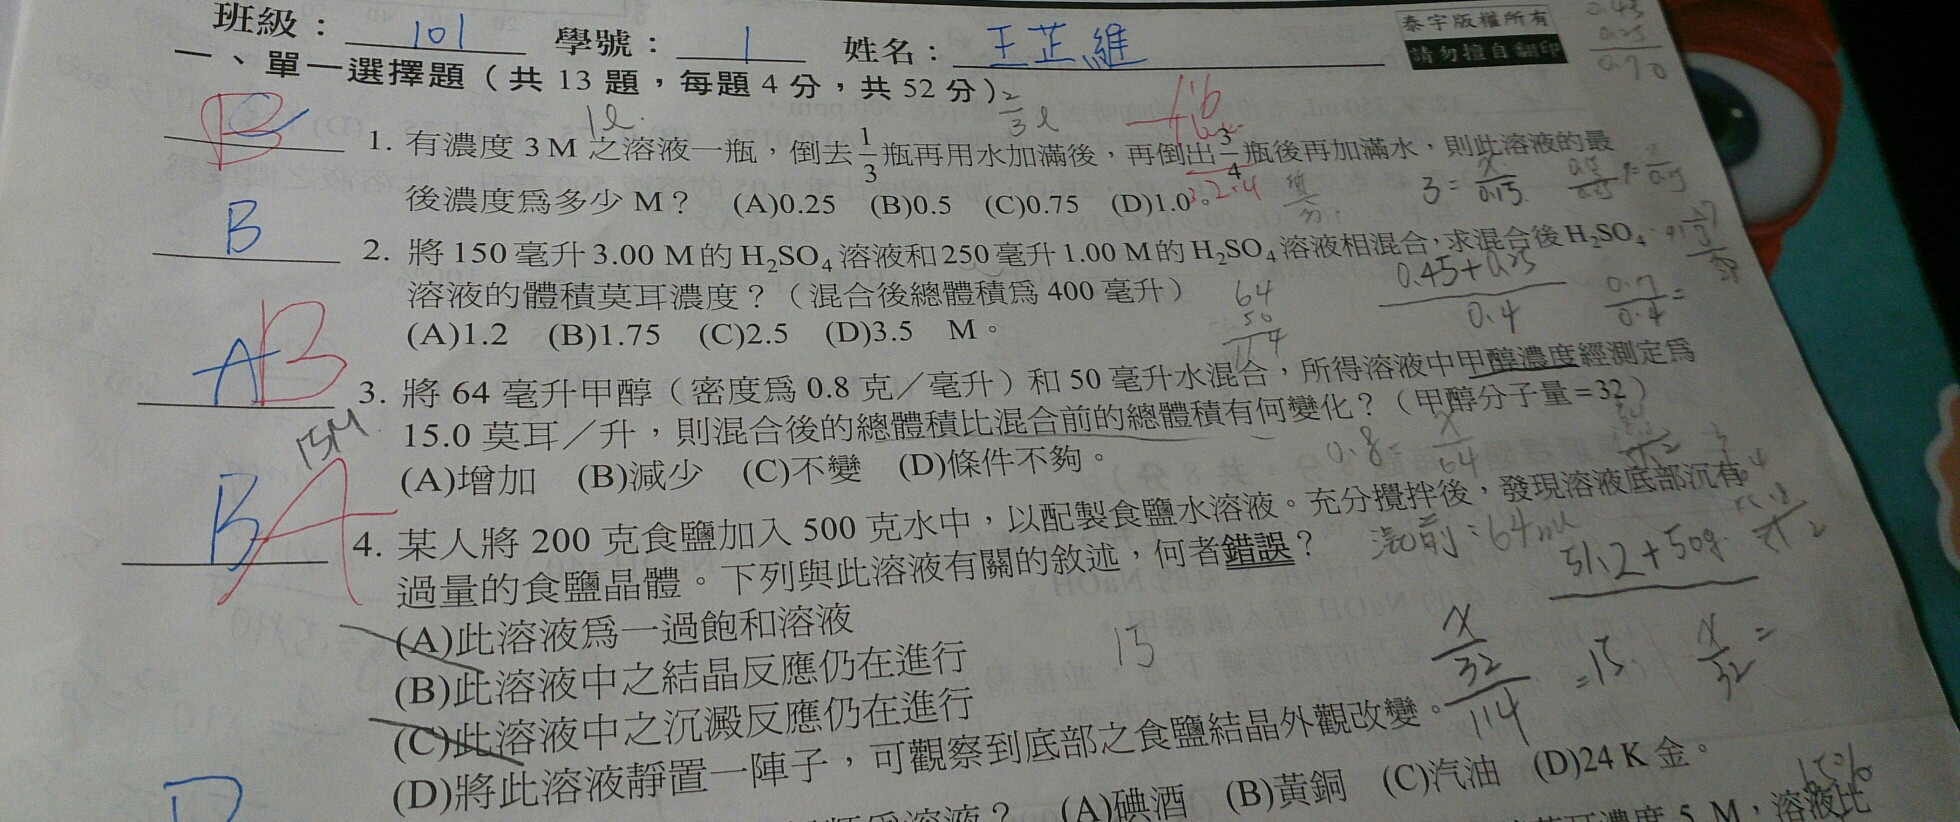 班級：101 學號：1 姓名：王芷維
泰宇版權所有
請勿擅自翻印
一、單一選擇題（共 13 題，每題 4 分，共 52 分）
B 1. 有濃度 3 M 之溶液一瓶，倒去 1/3 瓶再用水加滿後，再倒出 3/4 瓶後再加滿水，則此溶液的最
後濃度爲多少 M？ (A)0.25 (B)0.5 (C)0.75 (D)1.0。
B 2. 將 150 毫升 3.00 M 的 H₂SO₄ 溶液和 250 毫升 1.00 M 的 H₂SO₄ 溶液相混合，求混合後 H₂SO₄
溶液的體積莫耳濃度？（混合後總體積爲 400 毫升）
(A)1.2 (B)1.75 (C)2.5 (D)3.5 M。
A B 3. 將 64 毫升甲醇（密度爲 0.8 克／毫升）和 50 毫升水混合，所得溶液中甲醇濃度經測定爲
15.0 莫耳／升，則混合後的總體積比混合前的總體積有何變化？（甲醇分子量=32）
(A)增加 (B)減少 (C)不變 (D)條件不夠。
B A 4. 某人將 200 克食鹽加入 500 克水中，以配製食鹽水溶液。充分攪拌後，發現溶液底部沉有
過量的食鹽晶體。下列與此溶液有關的敘述，何者錯誤？
(A)此溶液爲一過飽和溶液
(B)此溶液中之結晶反應仍在進行
(C)此溶液中之沉澱反應仍在進行
(D)將此溶液靜置一陣子，可觀察到底部之食鹽結晶外觀改變。
(A)碘酒 (B)黃銅 (C)汽油 (D)24 K 金。
濃度 5 M，溶液比
1ℓ
2/3 ℓ
3 = x/0.15
0.45+0.25
0.4
0.7/0.4 =
0.45
0.25
0.70
64
50
114
15M
0.8 = x/64
混前：64ml
51.2 + 50g
15
x/32
114
=15
x/32 =